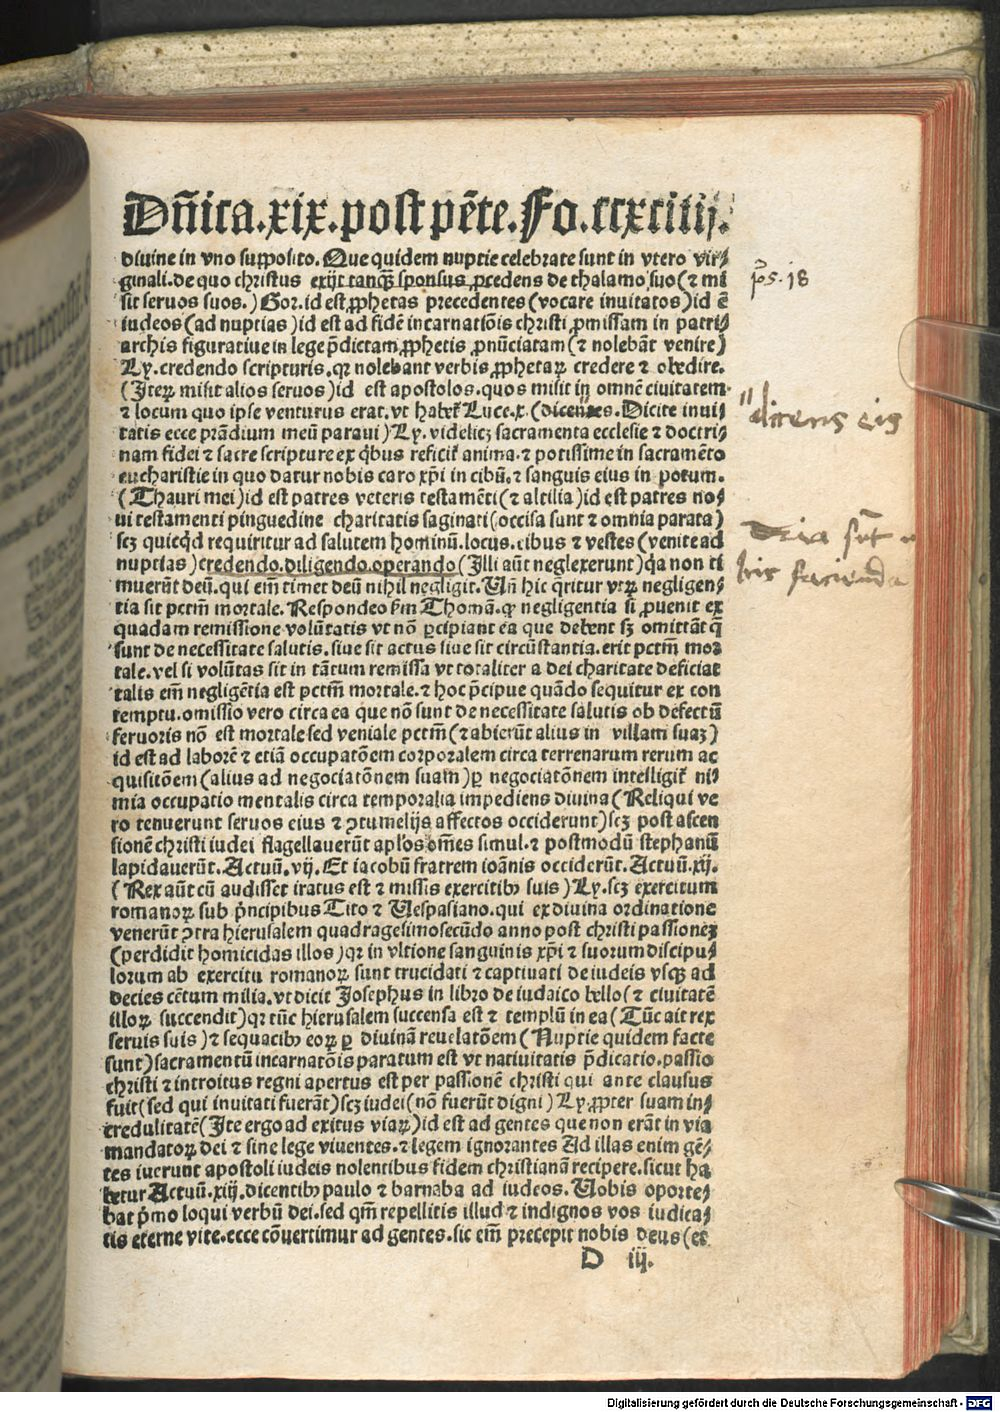 Dñica.xix.post pẽte.Fo.ccxciiij.
diuine in vno supposito. Que quidem nuptie celebrate sunt in vtero vir⸗
ginali.de quo christus exijt tanqꝫ sponsus ꝓcedens de thalamo suo (⁊ mi
sit seruos suos.) Gor.id est ꝓphetas precedentes (vocare inuitatos) id ē
iudeos (ad nuptias) id est ad fidē incarnatiōis christi ꝓmissam in patri⸗
archis figuratiue in lege p̄dictam ꝓphetis ꝓnūciatam (⁊ nolebāt venire)
Ly.credendo scripturis.qꝛ nolebant verbis ꝓphetaꝝ credere ⁊ obedire.
(Iteꝝ misit alios seruos) id est apostolos.quos misit in omnē ciuitatem
⁊ locum quo ipse venturus erat.vt habet̄ Luce.x. (dicentes. Dicite inui
tatis ecce prādium meū paraui) Ly. videlicꝫ sacramenta ecclesie ⁊ doctri⸗
nam fidei ⁊ sacre scripture ex q̄bus reficit̄ anima.⁊ potissime in sacramēto
eucharistie in quo datur nobis caro xp̄i in cibū.⁊ sanguis eius in potum.
(Thauri mei) id est patres veteris testamēti (⁊ altilia) id est patres no⸗
ui testamenti pinguedine charitatis saginati (occisa sunt ⁊ omnia parata)
scꝫ quicq̄d requiritur ad salutem hominū.locus.cibus ⁊ vestes (venite ad
nuptias) credendo.diligendo.operando (Illi aūt neglexerunt) q̄a non ti
muerūt deū.qui em̄ timet deū nihil negligit. Uñ hic q̄ritur vtꝝ negligen⸗
tia sit pctm̄ mortale. Respondeo s̄m Thomā.ꝙ negligentia si ꝓuenit ex
quadam remissione volūtatis vt nō ꝑcipiant ea que debent sꝫ omittāt q̄
sunt de necessitate salutis.siue sit actus siue sit circūstantia.erit pctm̄ mor
tale.vel si volūtas sit in tātum remissa vt totaliter a dei charitate deficiat
talis em̄ negligētia est pctm̄ mortale.⁊ hoc p̄cipue quādo sequitur ex con
temptu.omissio vero circa ea que nō sunt de necessitate salutis ob defectū
feruoris nō est mortale sed veniale pctm̄ (⁊ abierūt alius in villam suaꝫ)
id est ad laborē ⁊ etiā occupatōem corporalem circa terrenarum rerum ac
quisitōem (alius ad negociatōnem suam) ꝑ negociatōnem intelligit̄ ni⸗
mia occupatio mentalis circa temporalia impediens diuina (Reliqui ve
ro tenuerunt seruos eius ⁊ ꝯtumelijs affectos occiderunt) scꝫ post ascen
sionē christi iudei flagellauerūt apl'os om̄es simul.⁊ postmodū stephanū
lapidauerūt. Actuū.vij. Et iacobū fratrem ioānis occiderūt. Actuū.xij.
(Rex aūt cū audisset iratus est ⁊ missis exercitibꝰ suis) Ly.scꝫ exercitum
romanoꝝ sub p̄ncipibus Tito ⁊ Uespasiano.qui ex diuina ordinatione
venerūt ꝯtra hierusalem quadragesimosecūdo anno post christi passioneꝫ
(perdidit homicidas illos) qꝛ in vltione sanguinis xp̄i ⁊ suorum discipu⸗
lorum ab exercitu romanoꝝ sunt trucidati ⁊ captiuati de iudeis vsqꝫ ad
decies cētum milia.vt dicit Josephus in libro de iudaico bello (⁊ ciuitatē
illoꝝ succendit) qꝛ tūc hierusalem succensa est ⁊ templū in ea (Tūc ait rex
seruis suis) ⁊ sequacibꝰ eoꝝ ꝑ diuinā reuelatōem (Nuptie quidem facte
sunt) sacramentū incarnatōis paratum est vt natiuitatis p̄dicatio.passio
christi ⁊ introitus regni apertus est per passionē christi qui ante clausus
fuit (sed qui inuitati fuerāt) scꝫ iudei (nō fuerūt digni) Ly.ꝓpter suam in⸗
credulitatē (Ite ergo ad exitus viaꝝ) id est ad gentes que non erāt in via
mandatoꝝ dei ⁊ sine lege viuentes.⁊ legem ignorantes Ad illas enim gē⸗
tes iuerunt apostoli iudeis nolentibus fidem christianā recipere.sicut ha
betur Actuū.xiij.dicentibꝰ paulo ⁊ barnaba ad iudeos. Uobis oporte⸗
bat p̄mo loqui verbū dei.sed qm̄ repellitis illud ⁊ indignos vos iudica⸗
tis eterne vite.ecce cōuertimur ad gentes.sic em̄ precepit nobis deus (et
D iij.
ps. 18
"dicens eis
Tria sūt
bis facienda
Digitalisierung gefördert durch die Deutsche Forschungsgemeinschaft - DFG